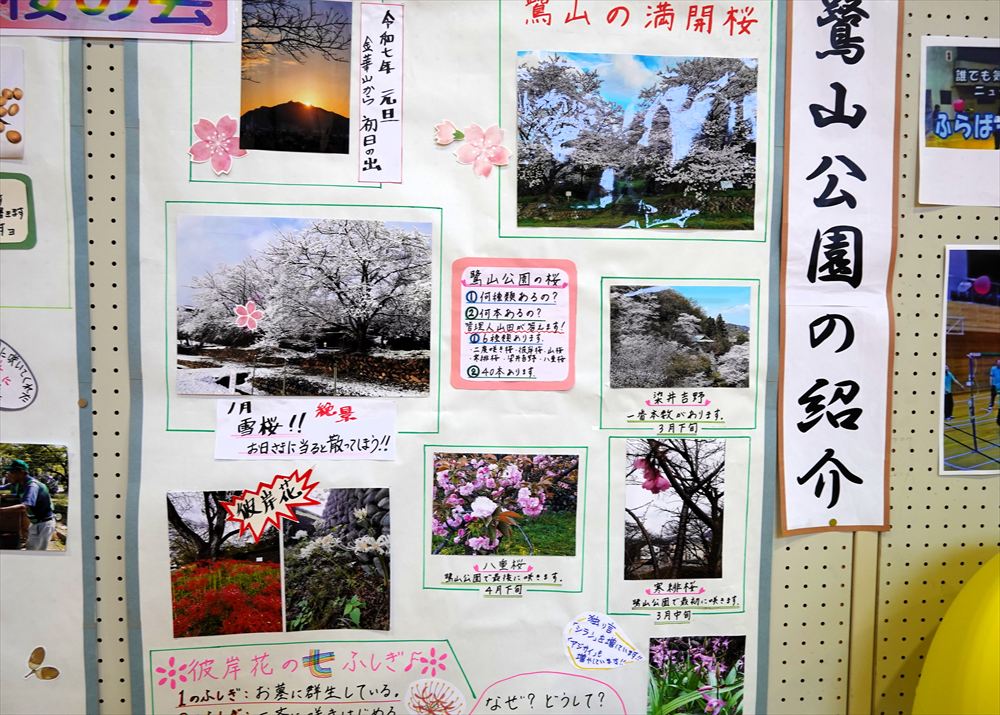 桜の会
令和七年 元旦
金華山から 初日の出
鷺山の満開桜
鷺山公園の紹介
誰でも気
ニュ
ふらば
鷺山公園の桜
①何種類あるの?
②何本あるの?
管理人山田が答えます!
①6種類あります。
・二度咲き桜・彼岸桜・山桜
・寒緋桜・染井吉野・八重桜
②40本です。
染井吉野
一番本数があります。
3月下旬
1月 絶景
雪桜!!
お日さまに当ると散ってしまう!!
彼岸花
八重桜
鷺山公園で最後に咲きます。
4月下旬
寒緋桜
鷺山公園で最初に咲きます。
3月中旬
独り言
「シラン」を増しています!!
「アジサイ」を
増やしています!!
彼岸花の七ふしぎ♪
1のふしぎ:お墓に群生している。
なぜ?どうして?